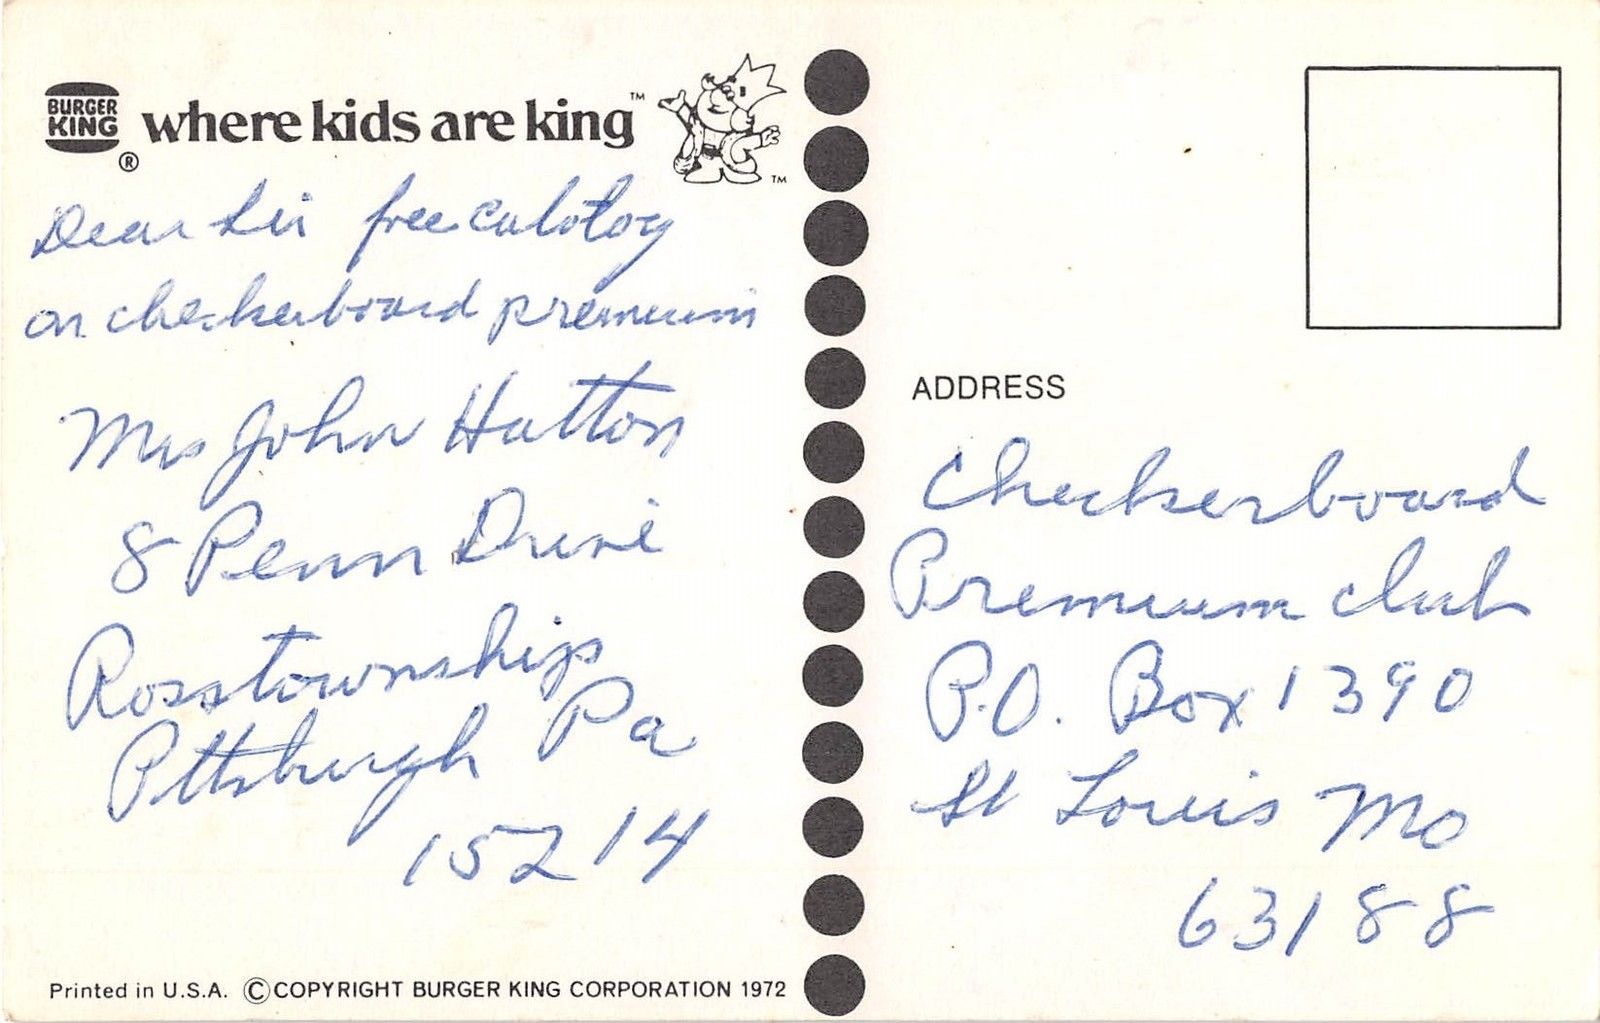 BURGER
KING
®
where kids are king™
™
Dear Sir free calotog
on checkerboard premeuim
Mrs John Hatton
8 Penn Drive
Rosstownship
Pttsburgh Pa
15214
Printed in U.S.A. © COPYRIGHT BURGER KING CORPORATION 1972
ADDRESS
Checkerboard
Premuum club
P.O. Box 1390
St Louis Mo
63188